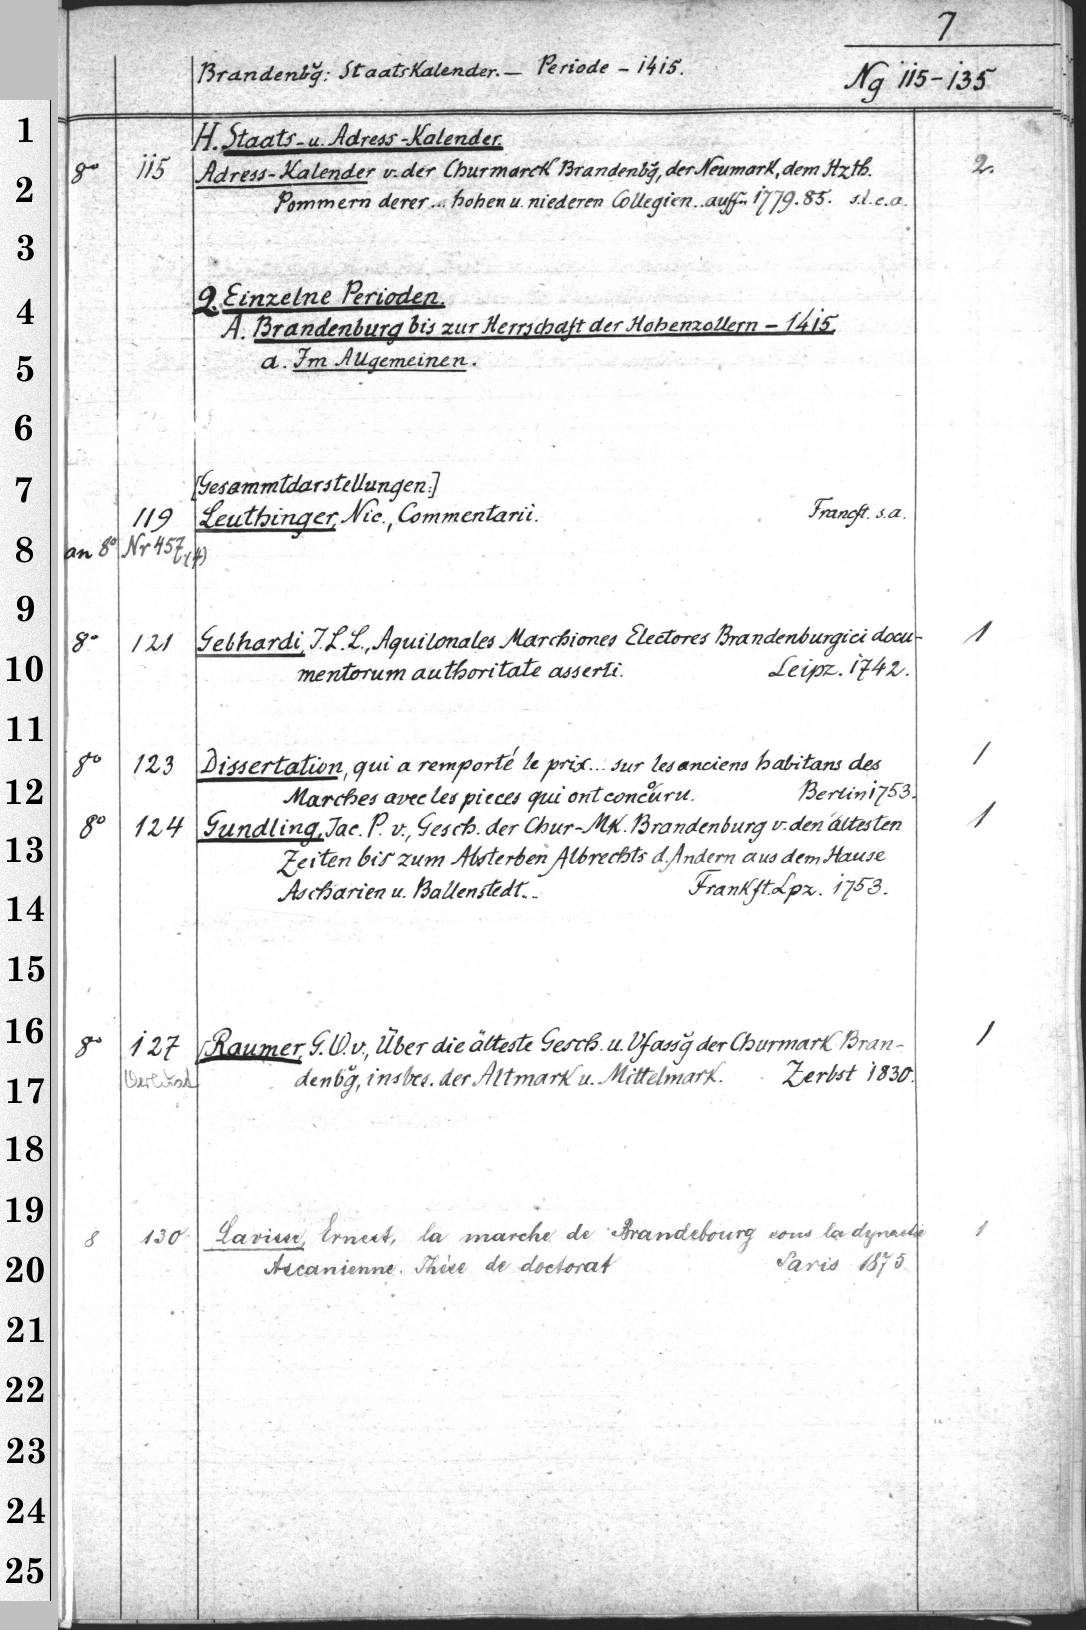 7
Brandenb̆g: StaatsKalender. — Periode – 1415.
Ng 115–135
1
H. Staats- u. Adress-Kalender.
8° 115 Adress-Kalender v. der Churmarck Brandenb̆g, der Neumark, dem Hzth. 2.
2
Pommern derer... hohen u. niederen Collegien.. auff 1779.85. s.l.e.a.
3
2. Einzelne Perioden.
4
A. Brandenburg bis zur Herrschaft der Hohenzollern – 1415.
5
a. Im Allgemeinen.
6
7
[Gesammtdarstellungen:]
119 Leuthinger, Nic., Commentarii. Francft. s.a.
8
an 8° Nr 457 (4)
9
8° 121 Gebhardi, J. L. L., Aquilonales Marchiones Electores Brandenburgici docu- 1
10
mentorum authoritate asserti. Leipz. 1742.
11
8° 123 Dissertation, qui a remporté le prix... sur les anciens habitans des 1
12
Marches avec les pieces qui ont concŭru. Berlin 1753.
8° 124 Gundling, Jac. P. v., Gesch. der Chur-Mk. Brandenburg v. den ältesten 1
13
Zeiten bis zum Absterben Albrechts d. Andern aus dem Hause
14
Ascharien u. Ballenstedt... Frankft. Lpz. 1753.
15
16
8° 127 Raumer, G. W. v., Über die älteste Gesch. u. Vfass̆g der Churmark Bran- 1
17
Verlust denb̆g, insbes. der Altmark u. Mittelmark. Zerbst 1830.
18
19
8 130 Lavisse, Ernest, la marche de Brandebourg sous la dynastie 1
20
Ascanienne. Thèse de doctorat Paris 1875
21
22
23
24
25